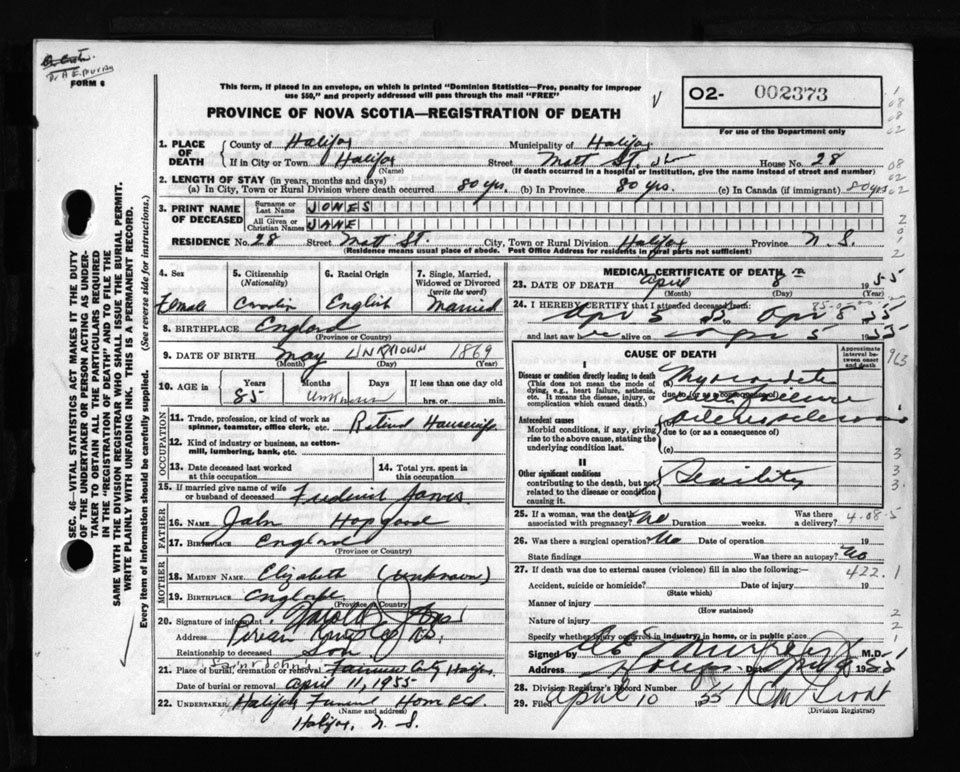 Dr A E Murray
FORM 6
This form, if placed in an envelope, on which is printed "Dominion Statistics—Free, penalty for improper
use $50," and properly addressed will pass through the mail "FREE"
PROVINCE OF NOVA SCOTIA—REGISTRATION OF DEATH
O2- 002373
For use of the Department only
SEC. 46—VITAL STATISTICS ACT MAKES IT THE DUTY
OF THE UNDERTAKER OR PERSON ACTING AS UNDER-
TAKER TO OBTAIN ALL THE PARTICULARS REQUIRED
IN THE "REGISTRATION OF DEATH" AND TO FILE THE
SAME WITH THE DIVISION REGISTRAR WHO SHALL ISSUE THE BURIAL PERMIT.
WRITE PLAINLY WITH UNFADING INK. THIS IS A PERMANENT RECORD.
Every item of information should be carefully supplied. (See reverse side for instructions.)
1. PLACE OF DEATH County of Halifax Municipality of Halifax
If in City or Town Halifax Street Matt St. House No. 28
(Name) (If death occurred in a hospital or institution, give the name instead of street and number)
2. LENGTH OF STAY (in years, months and days)
(a) In City, Town or Rural Division where death occurred 80 yrs. (b) In Province 80 yrs. (c) In Canada (if immigrant) 80 yrs
3. PRINT NAME OF DECEASED Surname or Last Name JONES
All Given or Christian Names JANE
RESIDENCE No. 28 Street Matt St. City, Town or Rural Division Halifax Province N.S.
(Residence means usual place of abode. Post Office Address for residents in rural parts not sufficient)
4. Sex Female
5. Citizenship (Nationality)
6. Racial Origin English
7. Single, Married, Widowed or Divorced (write the word) Married
8. BIRTHPLACE England
(Province or Country)
9. DATE OF BIRTH May UNKNOWN 1869
(Month) (Day) (Year)
10. AGE in Years 85 Months Days Unknown If less than one day old hrs. or min.
OCCUPATION
11. Trade, profession, or kind of work as spinner, teamster, office clerk, etc. Retired Housewife
12. Kind of industry or business, as cotton-mill, lumbering, bank, etc.
13. Date deceased last worked at this occupation
14. Total yrs. spent in this occupation
15. If married give name of wife or husband of deceased Frederick Jones
FATHER
16. NAME John Hopgood
17. BIRTHPLACE England
(Province or Country)
MOTHER
18. MAIDEN NAME Elizabeth (unknown)
19. BIRTHPLACE England
(Province or Country)
20. Signature of informant Harold Jones
Address
Relationship to deceased Son
Saint John's
21. Place of burial, cremation or removal Fairview City, Halifax
Date of burial or removal April 11, 1955
22. UNDERTAKER Halifax Funeral Home Ltd.
(Name and address)
Halifax, N. S.
MEDICAL CERTIFICATE OF DEATH
23. DATE OF DEATH April 8 1955
(Month) (Day) (Year)
24. I HEREBY CERTIFY that I attended deceased from:
Apr 5 55 to Apr 8 1955
and last saw h er alive on Apr 5 1955
CAUSE OF DEATH
Approximate interval between onset and death
I
Disease or condition directly leading to death (a) Myocardite
(This does not mean the mode of dying, e.g., heart failure, asthenia, etc. It means the disease, injury, or complication which caused death.)
due to (or as a consequence of)
Antecedent causes
Morbid conditions, if any, giving rise to the above cause, stating the underlying condition last.
(b) Arteriosclerosis
due to (or as a consequence of)
(c)
II
Other significant conditions contributing to the death, but not related to the disease or condition causing it. Senility
25. If a woman, was the death associated with pregnancy? No Duration weeks. Was there a delivery?
26. Was there a surgical operation? No Date of operation 19
State findings Was there an autopsy? No
27. If death was due to external causes (violence) fill in also the following: 422.1
Accident, suicide or homicide? Date of injury 19
(State which)
Manner of injury
(How sustained)
Nature of injury
Specify whether injury occurred in industry, in home, or in public place
Signed by A E Murray M.D.
Address Date April 9 1955
28. Division Registrar's Record Number
29. Filed April 10 1955
(Division Registrar)